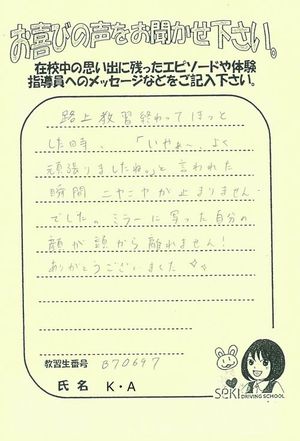 お喜びの声をお聞かせ下さい。
在校中の思い出に残ったエピソードや体験
指導員へのメッセージなどをご記入下さい。
路上教習終わってほっと
した時、「いやぁ〜、よく
頑張りましたね。」と言われた
瞬間 ニヤニヤが止まりません
でした。ミラーに写った自分の
顔が頭から離れません!
ありがとうございました
教習生番号 070697
氏名 K・A
SEKI
DRIVING SCHOOL